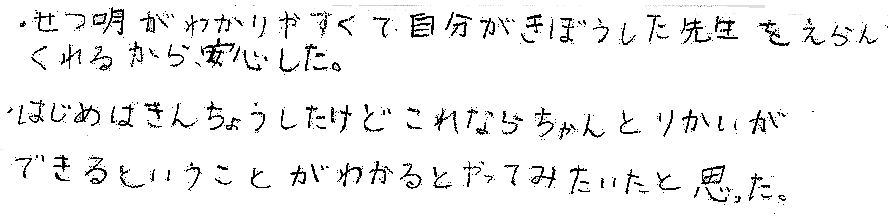 ・せつ明がわかりやすくて自分がきぼうした先生をえらん
くれるから、安心した。
・はじめはきんちょうしたけどこれならちゃんとりかいが
できるということがわかるとやってみたいたと思った。